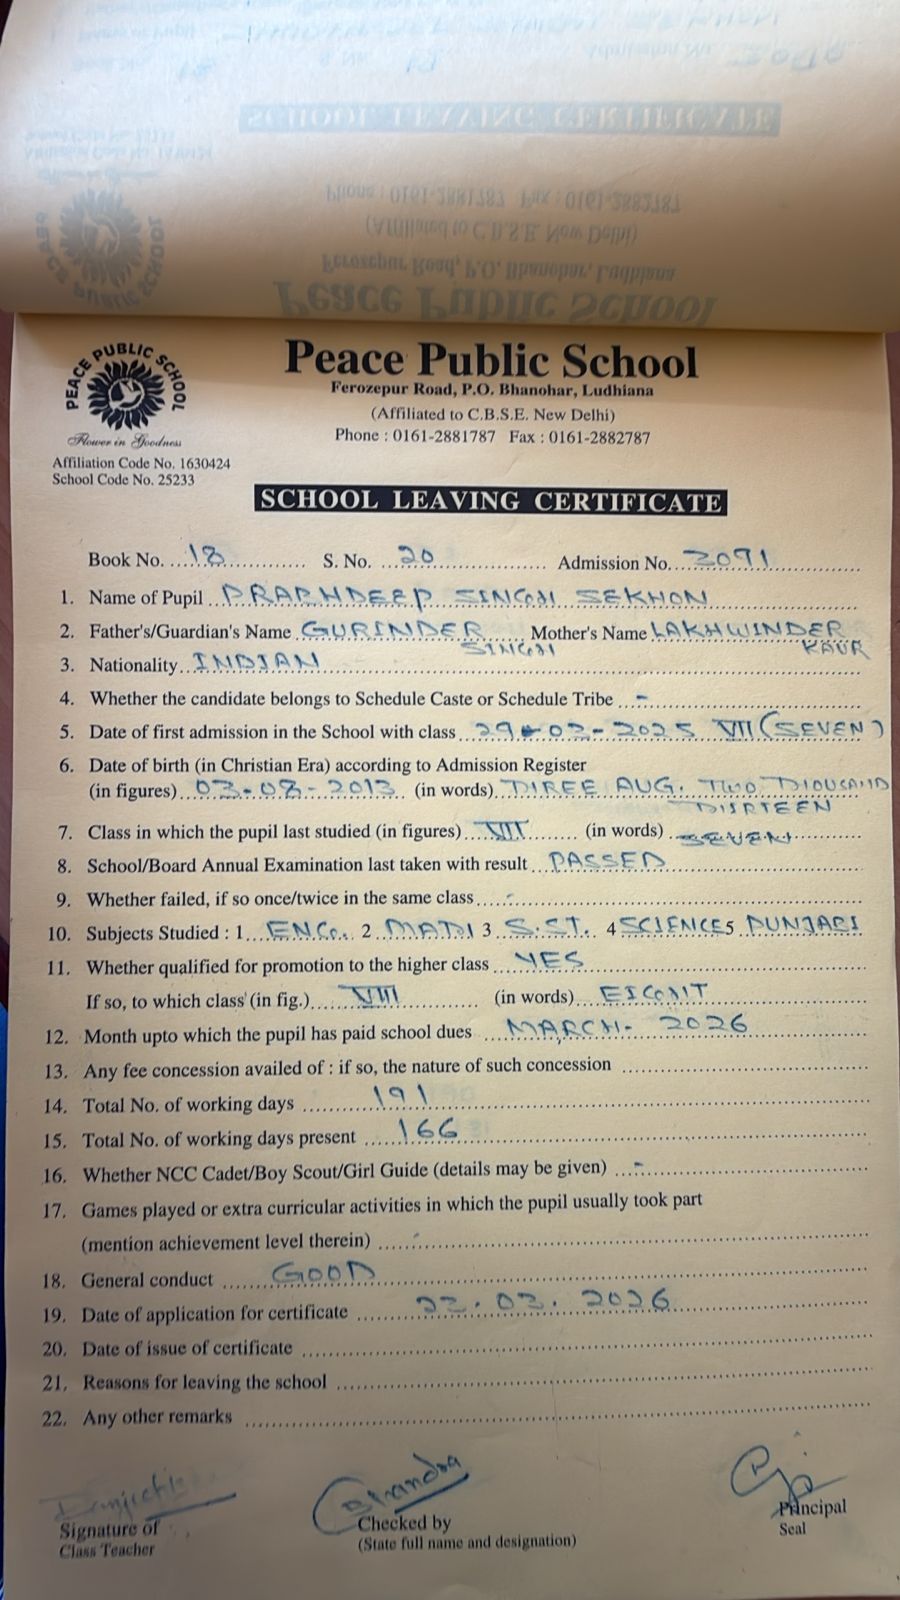 SCHOOL LEAVING CERTIFICATE
Phone : 0161-2881787 Fax : 0161-2882787
(Affiliated to C.B.S.E. New Delhi)
Ferozepur Road, P.O. Bhanohar, Ludhiana
Peace Public School
PEACE PUBLIC SCHOOL
Flower in Goodness
Peace Public School
Ferozepur Road, P.O. Bhanohar, Ludhiana
(Affiliated to C.B.S.E. New Delhi)
Phone : 0161-2881787 Fax : 0161-2882787
Affiliation Code No. 1630424
School Code No. 25233
SCHOOL LEAVING CERTIFICATE
Book No. 18 S. No. 20 Admission No. 3091
1. Name of Pupil PRABHDEEP SINGH SEKHON
2. Father's/Guardian's Name GURINDER SINGH Mother's Name LAKHWINDER KAUR
3. Nationality INDIAN
4. Whether the candidate belongs to Schedule Caste or Schedule Tribe -
5. Date of first admission in the School with class 29-03-2025 VII (SEVEN)
6. Date of birth (in Christian Era) according to Admission Register
(in figures) 03-08-2013 (in words) THREE AUG. TWO THOUSAND THIRTEEN
7. Class in which the pupil last studied (in figures) VII (in words) SEVEN
8. School/Board Annual Examination last taken with result PASSED
9. Whether failed, if so once/twice in the same class -
10. Subjects Studied : 1 ENG. 2 MATH 3 S.ST. 4 SCIENCE 5 PUNJABI
11. Whether qualified for promotion to the higher class YES
If so, to which class (in fig.) VIII (in words) EIGHT
12. Month upto which the pupil has paid school dues MARCH- 2026
13. Any fee concession availed of : if so, the nature of such concession
14. Total No. of working days 191
15. Total No. of working days present 166
16. Whether NCC Cadet/Boy Scout/Girl Guide (details may be given) -
17. Games played or extra curricular activities in which the pupil usually took part
(mention achievement level therein) -
18. General conduct GOOD
19. Date of application for certificate 23.03.2026
20. Date of issue of certificate
21. Reasons for leaving the school
22. Any other remarks
Signature of
Class Teacher
Chandra
Checked by
(State full name and designation)
Principal
Seal